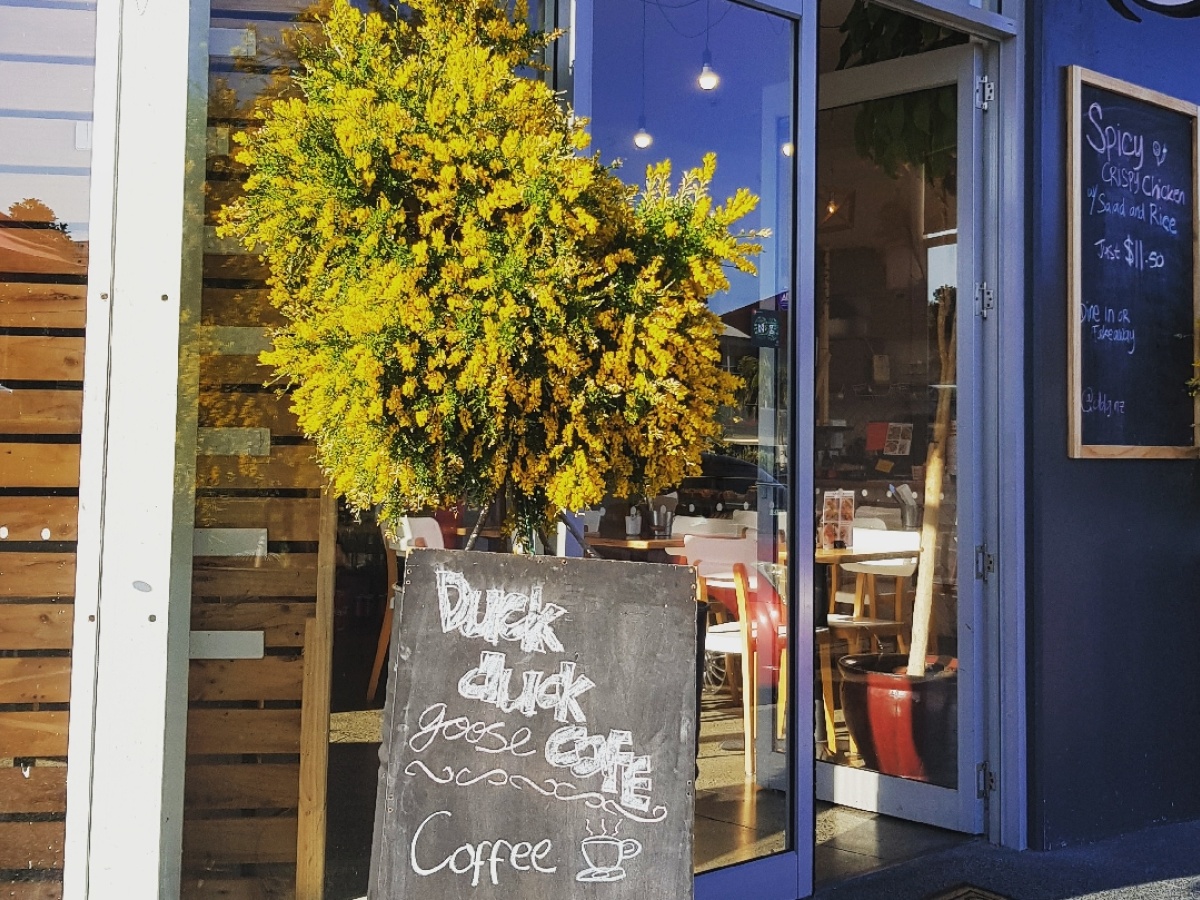 Duck
duck
goose CAFE
Coffee
Spicy
CRISPY Chicken
w/ Salad and Rice
Just $11.50
Dine in OR
Takeaway